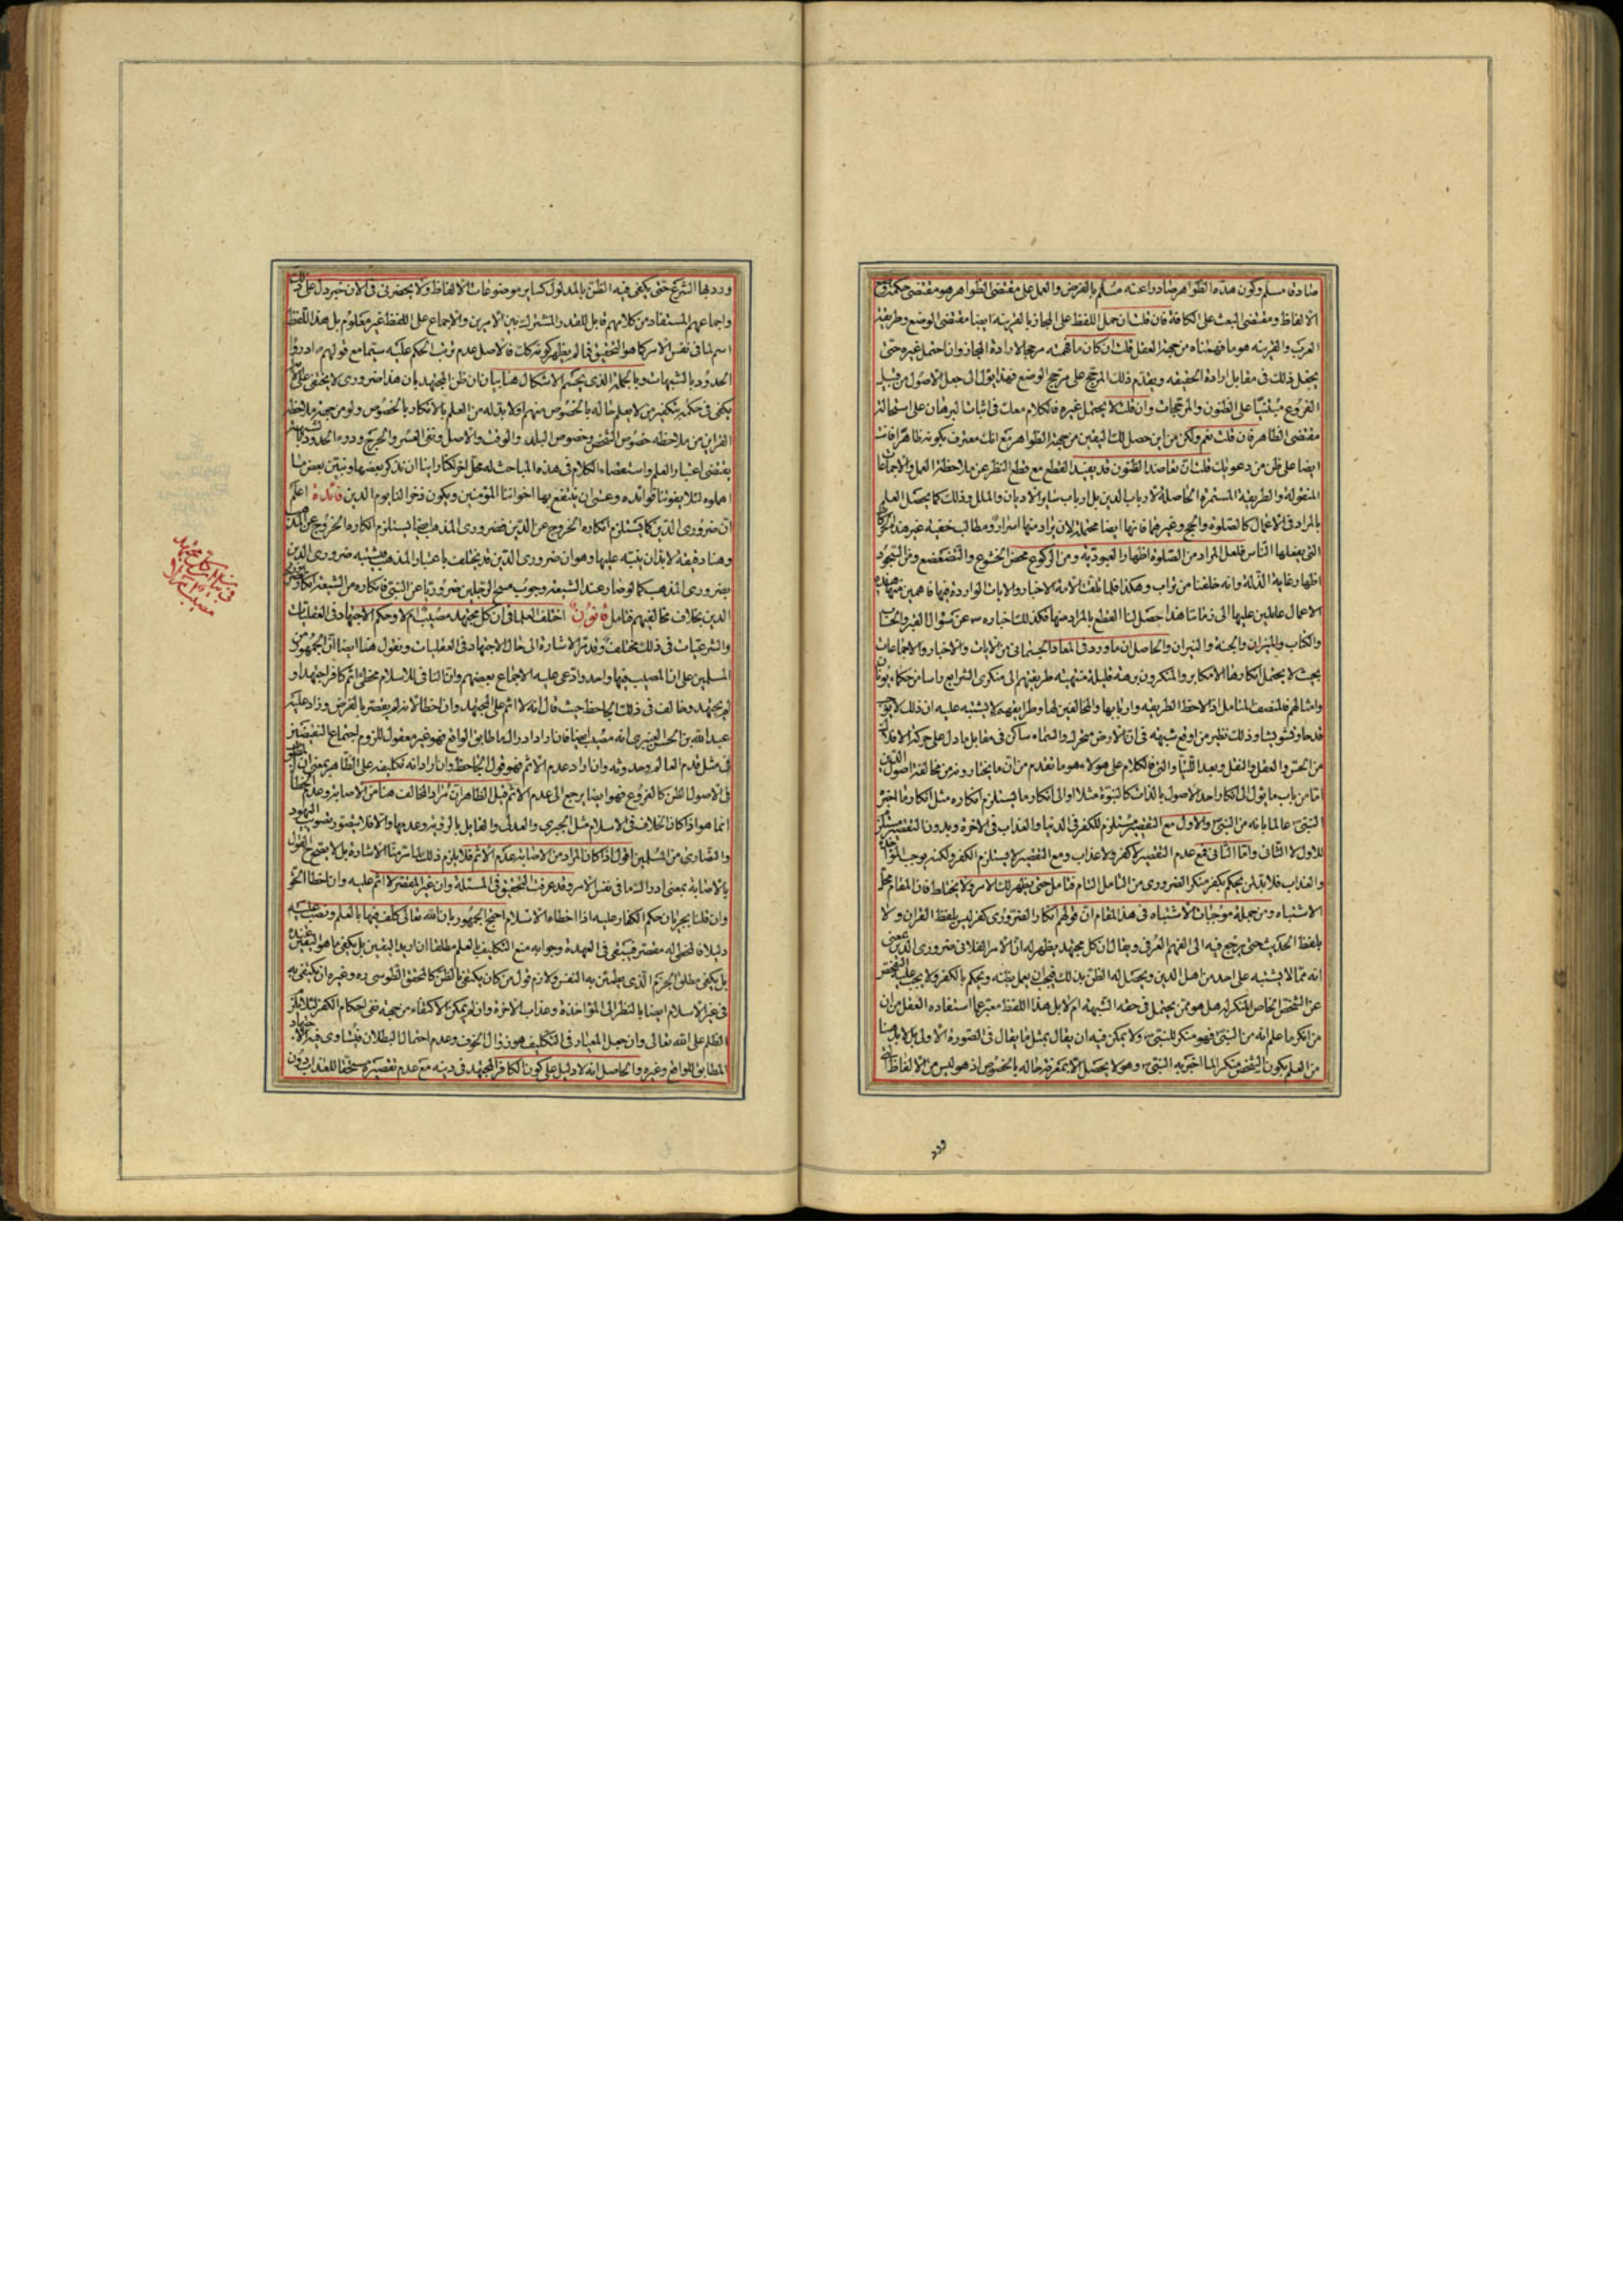 صادقا مسلم وكون هذه الظواهر صادرا عنه مسلم بالفرض والعمل على مقتضى الظواهر هو مقتضى حكمة وضع
الالفاظ ومقتضى البعث على الكافة فان قلت ان حمل اللفظ على المجاز بالقرينة ايضا مقتضى الوضع وطريقة
العرب والقرينة هو ما فهمناه من جهة العقل قلت ان كان ما فهمته مرجحا لارادة المجاز وان احتمل غيره حتى
يجعل ذلك في مقابل ارادة الحقيقة ويقدم ذلك المرجح على مرجح الوضع فهذا يؤل الى جعل الاصول من قبيل
الفروع مبتنيا على الظنون والمرجحات وان قلت لا يحتمل غيره فالكلام معك في اثبات البرهان على استحالة
مقتضى الظاهر فان قلت نعم ولكن من اين حصل لك اليقين من جهة الظواهر مع انك معترف بكونه ظاهرا فانت
ايضا على ظن من دعويك قلت ان تعاضد الظنون قد يفيد القطع مع قطع النظر عن ملاحظة العمل والاجماعات
المنقولة والطريقة المستمرة الحاصلة لارباب الدين بل ارباب ساير الاديان والملل وذلك كما يحصل العلم
بالمراد في الاعمال كالصلوة والحج وغيرهما فانها ايضا محتملة لان يراد منها اسرار ومطالب خفية غير هذه الحركات
التي يفعلها الناس فلعل المراد من الصلوة اظهار العبودية ومن الركوع محض الخشوع والتضعضع ومن السجود
اظهار غاية الذلة وانه خلقنا من تراب وهكذا فلما تلقت الامة الاخبار والايات الواردة فيها فاهمين منها هذه
الاعمال عاملين عليها الى زماننا هذا حصل لنا القطع بالمراد منها فكذلك اخباره عن سؤال القبر والحساب
والكتاب والميزان والجنة والنيران والحاصل ان ما ورد في المعاد الجسماني من الايات والاخبار والاجماعات
بحيث لا يحتمل انكارها الا مكابر والمنكرون برهنة قليلة منتهية طريقتهم الى منكري الشرايع راسا من حكماء يونان
وامثالهم فالمنصف المتامل اذا لاحظ الطريقة واربابها والمخالفين لها وطرايقهم لا يشتبه عليه ان ذلك لا يوجب
قدحا وتشويشا وذلك نظير من اوقع شبهة في ان الارض متحرك والسماء ساكن في مقابل ما دل على حركة الافلاك
من الحس والعقل والنقل وبعد اللتيا والتي فالكلام على هؤلاء هو ما تقدم من ان ما يختارونه من مخالفة اصول الدين
اما من باب ما يؤل الى انكار احد الاصول بالذات كالنبوة مثلا او الى انكار ما يستلزم انكاره مثل انكار ما اخبر
النبي ص عالما بانه من النبي ص والاول مع التقصير مستلزم للكفر في الدنيا والعذاب في الاخرة وبدون التقصير مستلزم
للاول لا الثاني واما الثاني فمع عدم التقصير لا كفر ولا عذاب ومع التقصير لا يستلزم الكفر ولكنه يوجب المؤاخذة
والعذاب فلا بد لمن يحكم بكفر منكر الضروري من التامل التام فتامل حتى يظهر لك الامر ولا يختلط فان المقام محل
الاشتباه ومن جملة موجبات الاشتباه في هذا المقام ان قولهم انكار الضروري كفر ليس بلفظ القران ولا
بلفظ الحديث حتى يرجع فيه الى الفهم العرفي ويقال ان كل مجتهد يظهر له ان الامر الفلاني ضروري الدين بمعنى
انه مما لا يشتبه على احد من اهل الدين ويحصل له الظن بذلك فيجب ان يعمل بظنه ويحكم بالكفر ولا يجب عليه التفحص
عن الشخص الخاص المنكر له هل هو ممن يحتمل في حقه الشبهة ام لا بل هذا اللفظ معبر عما استفاده العقل من ان
من انكر ما علم انه من النبي ص فهو منكر للنبي ص ولا يمكن فيه ان يقال بمثل ما يقال في الصورة الاولى بل لا بد هنا
من العلم بكون الشخص منكرا لما اخبر به النبي ص وهو لا يحصل الا بمعرفة حاله بالخصوص اذ هو ليس من الالفاظ التي
ورد
ورد بها الشرع حتى يكفي فيه الظن بالمدلول كساير موضوعات الالفاظ ولا يحضرني في الان خبر دل على ذلك
واجماعهم المستفاد من كلامهم قابل للقدر المشترك بين الامرين والاجماع على اللفظ غير معلوم بل هذا اللفظ
اسم لما في نفس الامر كما هو التحقيق فما لم يظهر كونه كذلك فالاصل عدم ترتب الحكم عليه سيما مع قولهم ع ادرؤا
الحدود بالشبهات وبالجملة الذي يحسم الاشكال هنا بيان ان ظن المجتهد بان هذا ضروري لا يخفى على
يكفي في حكمه بتكفير من لا يعلم حاله بالخصوص منهم او لا بد له من العلم بالانكار بالخصوص ولو من جهة ملاحظة
القراين من ملاحظه خصوص الشخص وخصوص البلد والوقت والاصل ونفي العسر والحرج ودرء الحدود بالشبهة
يقتضي اعتبار العلم واستقصاء الكلام في هذه المباحث له محل اخر لكنا راينا ان نذكر بعضها ونبين بعض ما
اهملوه لئلا يفوتنا فوائده وعسى ان ينتفع بها اخواننا المؤمنين ويكون ذخرا لنا يوم الدين فائدة اعلم
ان ضروري الدين كما يستلزم انكاره الخروج عن الدين فضروري المذهب ايضا يستلزم انكاره الخروج عن المذهب
وهنا دقيقة لا بد ان ينبه عليها وهو ان ضروري الدين قد يختلف باعتبار المذهب فيشتبه ضروري الدين
بضروري المذهب كما لو صار عند الشيعة وجوب مسح الرجلين ضروريا عن النبي ص فانكاره من الشيعة انكار لضروري
الدين بخلاف مخالفيهم فتامل قانون اختلف العلماء في ان كل مجتهد مصيب ام لا وحكم الاجتهاد في العقليات
والشرعيات في ذلك مختلف وقد مر الاشارة الى حال الاجتهاد في العقليات ونقول هنا ايضا ان الجمهور من
المسلمين على ان المصيب فيها واحد وادعى عليه الاجماع بعضهم وان النافي للاسلام مخطئ اثم كافر اجتهد او
لم يجتهد وخالف في ذلك الجاحظ حيث قال انه لا اثم على المجتهد وان اخطا لانه لم يقصر بالفرض وزاد عليه
عبدالله بن الحسن العنبري انه مصيب ايضا فان اراد ادراك ما طابق الواقع فهو غير معقول للزوم اجتماع النقيضين
في مثل قدم العالم وحدوثه وان اراد عدم الاثم فهو قول الجاحظ وان اراد انه تكليفه على الظاهر بمعنى ان
في الاصول الظن كالفروع فهو ايضا يرجع الى عدم الاثم قيل الظاهر ان مراد المخالف هنا من الاصابة وعدم الخطا
انما هو اذا كان الخلاف في الاسلام مثل الجبري والعدلي والقايل بالرؤية وعدمها والا فلا يتصور تصويب اليهود
والنصارى من المسلمين اقول اذا كان المراد من الاصابة عدم الاثم فلا يلزم ذلك لما مر منا الاشارة بل لا يصح القول
بالاصابة بمعنى ادراك ما في نفس الامر وقد عرفت التحقيق في المسئلة وان غير المقصر لا اثم عليه وان اخطا الحق
وان قلنا بجريان حكم الكفار عليه اذا اخطاء الاسلام احتج الجمهور بان الله تعالى كلف فيها بالعلم ونصب عليه
دليلا فالمخطئ له مقصر فيبقى في العهدة وجوابه منع التكليف بالعلم مطلقا ان اريد اليقين بل يكفي ما هو اليقين عنده
بل يكفي مطلق الجزم الذي يطمئن به النفس ولازم قول من كان يكتفي بالظن كالمحقق الطوسي ره وغيره ان يكتفي به
في غير الاسلام ايضا بالنظر الى المؤاخذة وعذاب الاخرة وان لم يمكن الاكتفاء من جهة نفي احكام الكفر لئلا يلزم
الظلم على الله تعالى وان جعل المعيار في التكليف هو زوال الخوف وعدم احتمال البطلان فيتساوى فيه الاجتهاد
المطابق للواقع وغيره والحاصل انه لا دليل على كون الكافر المجتهد في دينه مع عدم تقصيره مستحقا للعذاب دون
في بيان ان كل مجتهد
مصيب ام لا